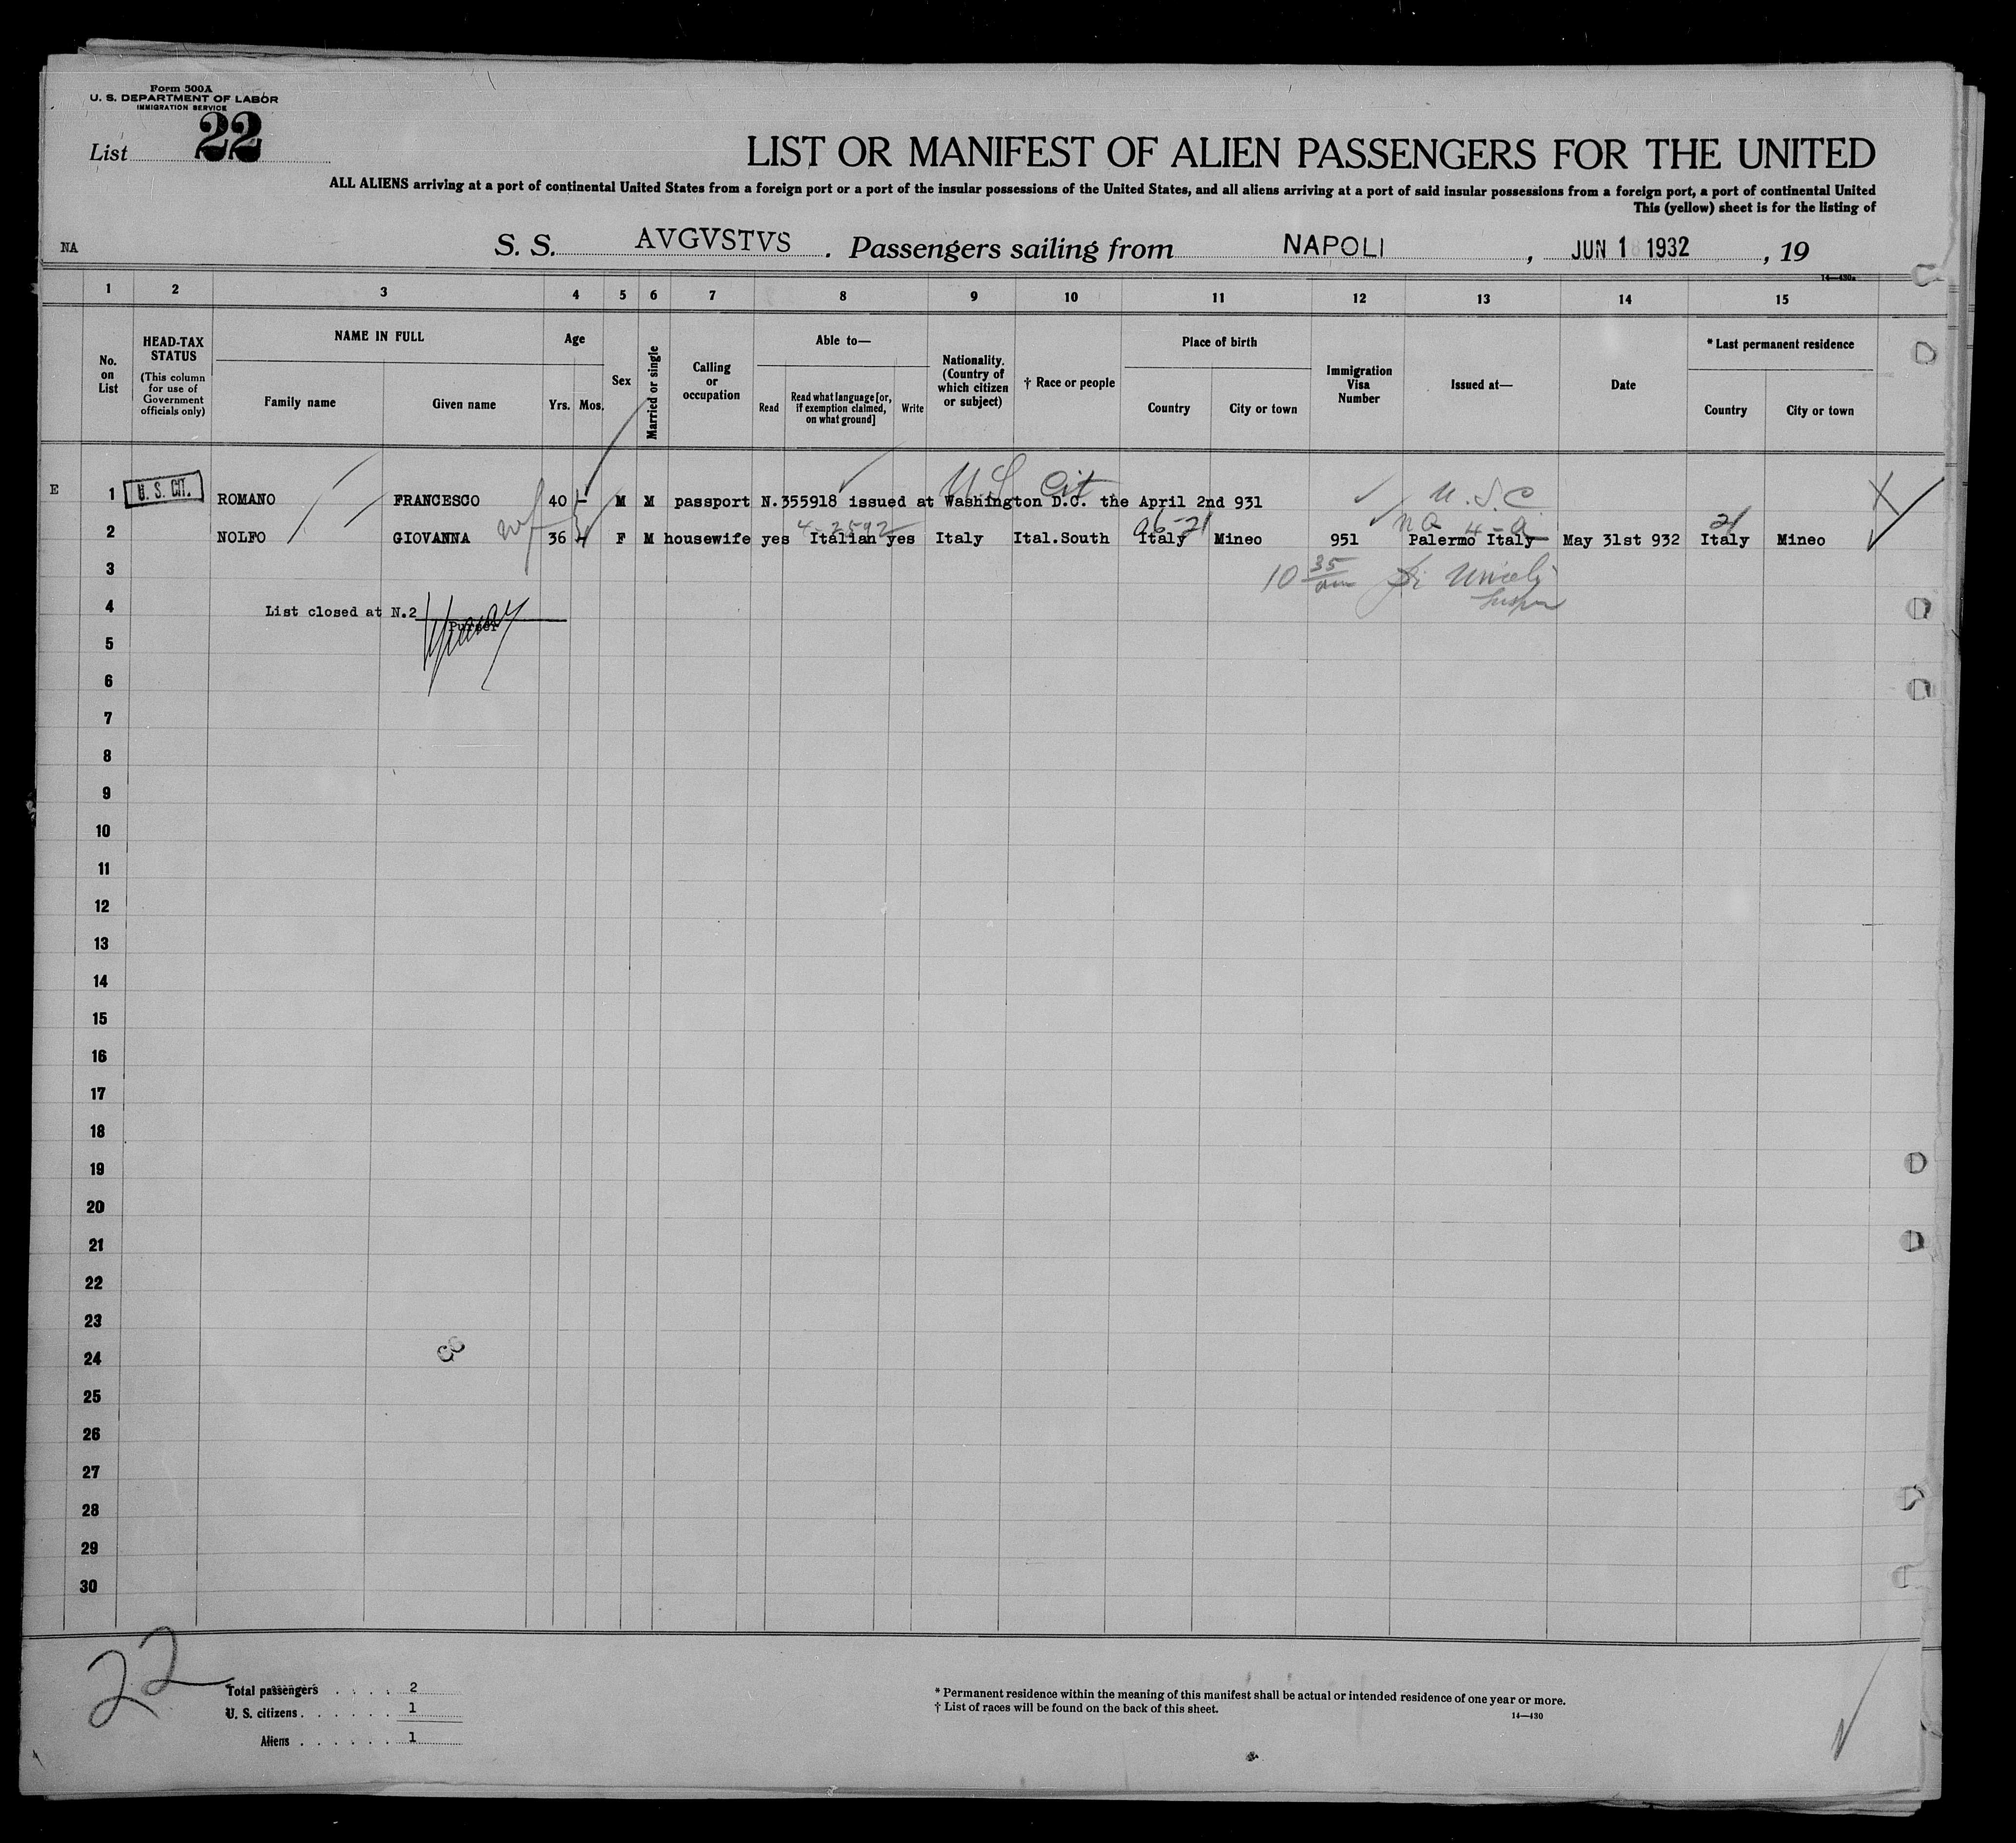 Form 500A
U. S. DEPARTMENT OF LABOR
IMMIGRATION SERVICE
List 22
LIST OR MANIFEST OF ALIEN PASSENGERS FOR THE UNITED
ALL ALIENS arriving at a port of continental United States from a foreign port or a port of the insular possessions of the United States, and all aliens arriving at a port of said insular possessions from a foreign port, a port of continental United
This (yellow) sheet is for the listing of
NA
S. S. AVGVSTVS . Passengers sailing from NAPOLI , JUN 18 1932 , 19
14—430a
1 2 3 4 5 6 7 8 9 10 11 12 13 14 15
No. on List
HEAD-TAX STATUS
(This column for use of Government officials only)
NAME IN FULL
Family name Given name
Age
Yrs. Mos.
Sex
Married or single
Calling or occupation
Able to—
Read
Read what language [or, if exemption claimed, on what ground]
Write
Nationality. (Country of which citizen or subject)
† Race or people
Place of birth
Country City or town
Immigration Visa Number
Issued at—
Date
* Last permanent residence
Country City or town
U S Cit U.S.C.
E 1 U. S. CIT. ROMANO FRANCESCO 40 - M M passport N.355918 issued at Washington D.C. the April 2nd 931
wf 4-2592 21
2 NOLFO GIOVANNA 36 4 F M housewife yes Italian yes Italy Ital.South Italy Mineo 951 Palermo Italy May 31st 932 Italy Mineo
3 10 35 am
4 List closed at N.2
Purser
5
6
7
8
9
10
11
12
13
14
15
16
17
18
19
20
21
22
23
24
25
26
27
28
29
30
22
Total passengers . . . . 2
U. S. citizens . . . . . . 1
Aliens . . . . . . 1
* Permanent residence within the meaning of this manifest shall be actual or intended residence of one year or more.
† List of races will be found on the back of this sheet.
14—430